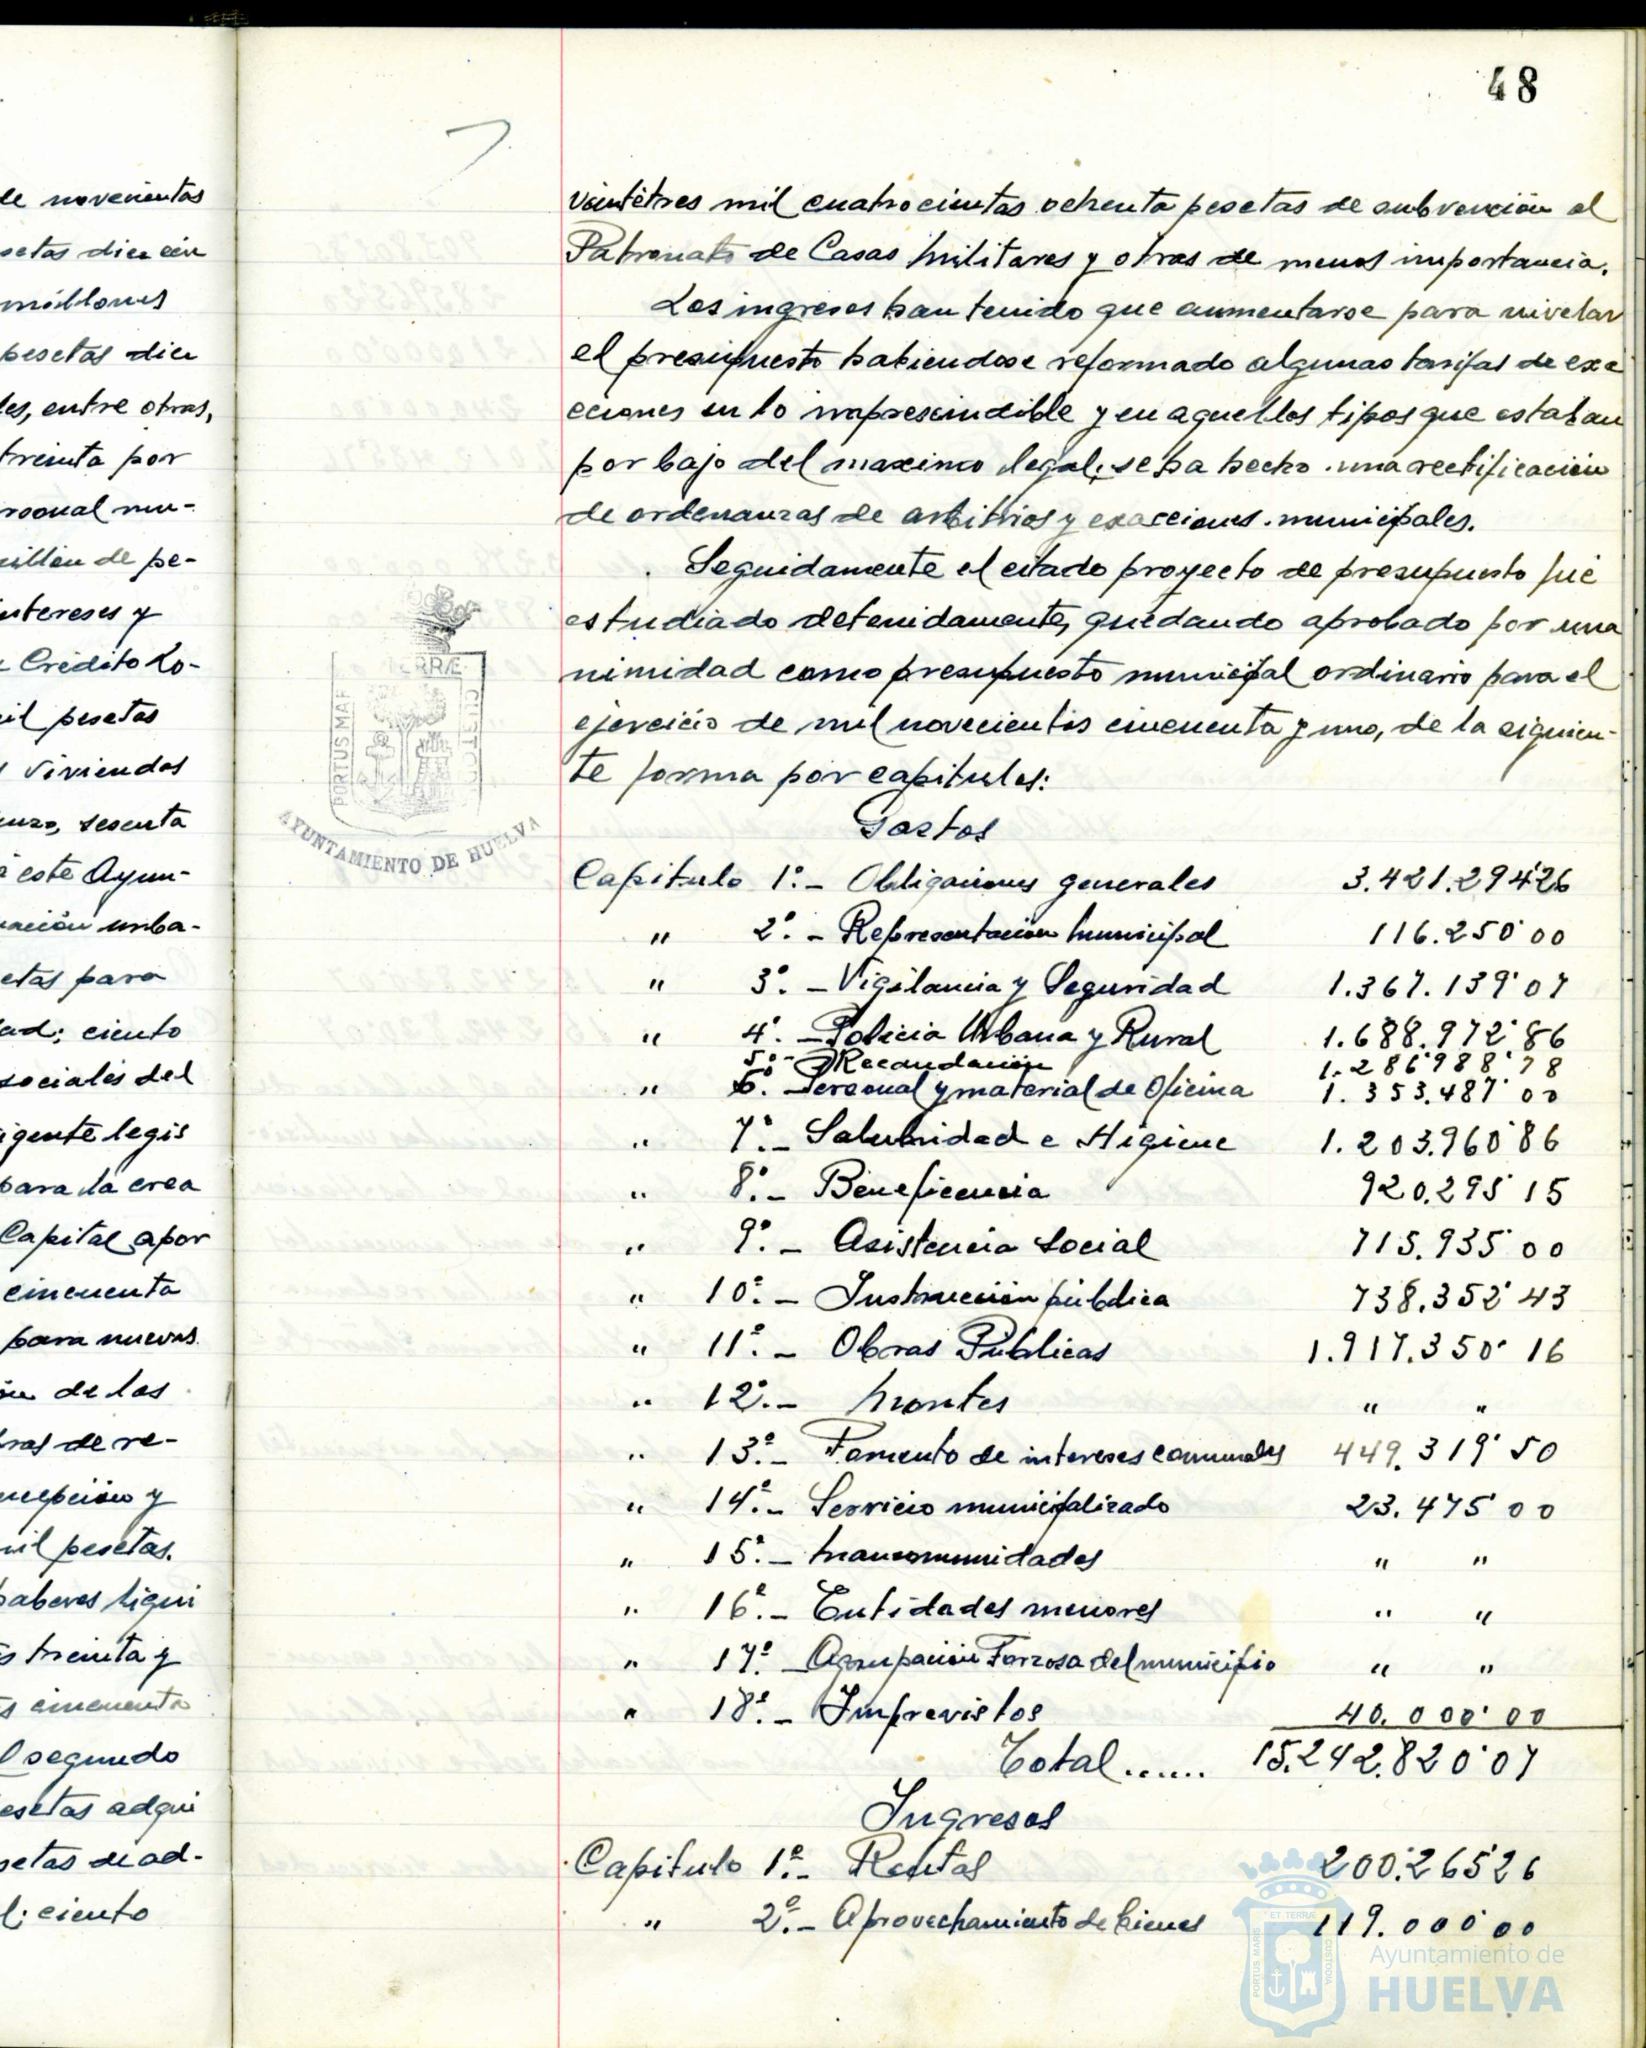 48
de novecientas
setas diez cén
millones
pesetas diez
les, entre otras,
treinta por
rsonal mu-
millón de pe-
intereses y
Crédito Lo-
il pesetas
viviendas
sesenta
este Ayun-
unba-
etas para
ad; ciento
sociales del
igente legis
para la crea
Capital apor
cincuenta
para nuevas
de las
ras de re-
cepción y
mil pesetas.
haberes liqui
s treinta y
s cincuenta
l segundo
esetas adqui
setas de ad-
l; ciento
veintitres mil cuatrocientas ochenta pesetas de subvención al
Patronato de Casas Militares y otras de menos importancia.
Los ingresos han tenido que aumentarse para nivelar
el presupuesto habiendose reformado algunas tarifas de exa
cciones en lo imprescindible y en aquellos tipos que estaban
por bajo del maximo legal; se ha hecho una rectificación
de ordenanzas de arbitrios y exacciones municipales.
Seguidamente el citado proyecto de presupuesto fué
estudiado detenidamente, quedando aprobado por una
nimidad como presupuesto municipal ordinario para el
ejercicio de mil novecientos cincuenta y uno, de la siguien-
te forma por capitulos:
Gastos
Capitulo 1º.- Obligaciones generales 3.421.294'26
" 2º.- Representación Municipal 116.250'00
" 3º.- Vigilancia y Seguridad 1.367.139'07
" 4º.- Policia Urbana y Rural 1.688.972'86
5º.- Recaudación 1.286.988'78
" 6º.- Personal y material de Oficina 1.353.487'00
" 7º.- Salubridad e Higiene 1.203.960'86
" 8º.- Beneficencia 920.295'15
" 9º.- Asistencia Social 715.935'00
" 10º.- Instrucción pública 738.352'43
" 11º.- Obras Públicas 1.917.350'16
" 12º.- Montes " "
" 13º.- Fomento de intereses comunales 449.319'50
" 14º.- Servicio municipalizado 23.475'00
" 15º.- Mancomunidades " "
" 16º.- Entidades menores " "
" 17º.- Agrupación Forzosa del municipio " "
" 18º.- Imprevistos 40.000'00
Total...... 15.242.820'07
Ingresos
Capitulo 1º.- Rentas 200.265'26
" 2º.- Aprovechamiento de bienes 119.000'00
TERRÆ
PORTUS MARIS
CUSTODIA
AYUNTAMIENTO DE HUELVA
ET TERRÆ
PORTUS MARIS
CUSTODIA
Ayuntamiento de
HUELVA